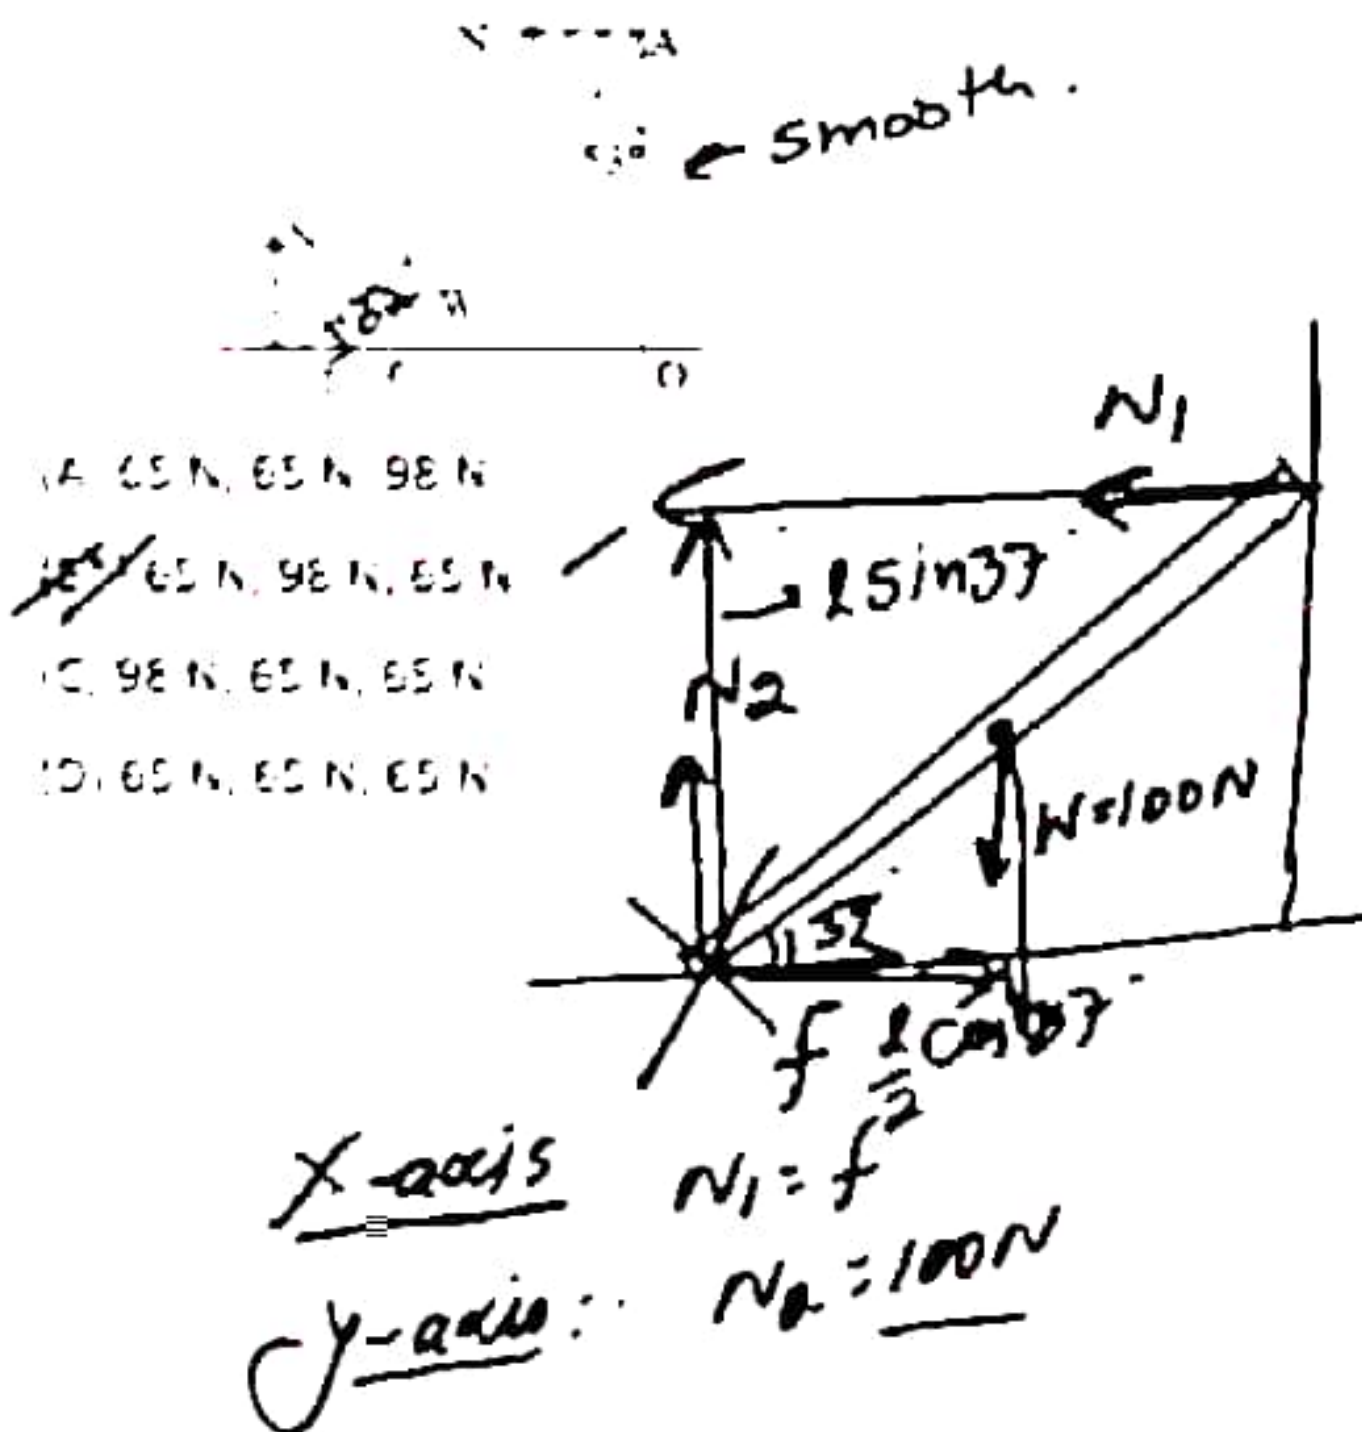 smooth.
(A 65 N, 65 N 98 N
65 N, 98 N, 65 N
(C. 98 N, 65 N, 65 N
(D) 65 N, 65 N, 65 N
N1
l sin37
N2
W=100N
37
f l/2 cos37
X-axis N1 = f
y-axis: N2 = 100N